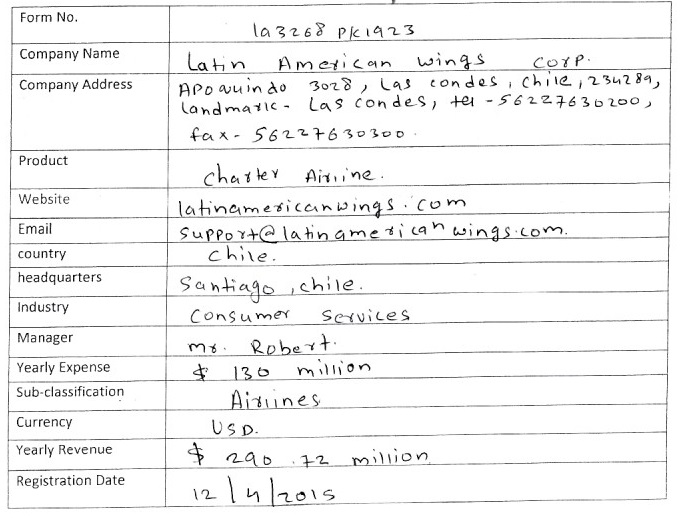 Form No. la3268 pk1923
Company Name Latin American wings corp.
Company Address Apoquindo 3028, Las condes, chile, 234289,
landmark - Las condes, tel - 56227630200,
fax - 56227630300.
Product charter Airline.
Website latinamericanwings.com
Email support@latinamericanwings.com.
country chile.
headquarters Santiago, chile.
Industry Consumer Services
Manager mr. Robert.
Yearly Expense $ 130 million
Sub-classification Airlines
Currency USD.
Yearly Revenue $ 290.72 million
Registration Date 12/4/2015